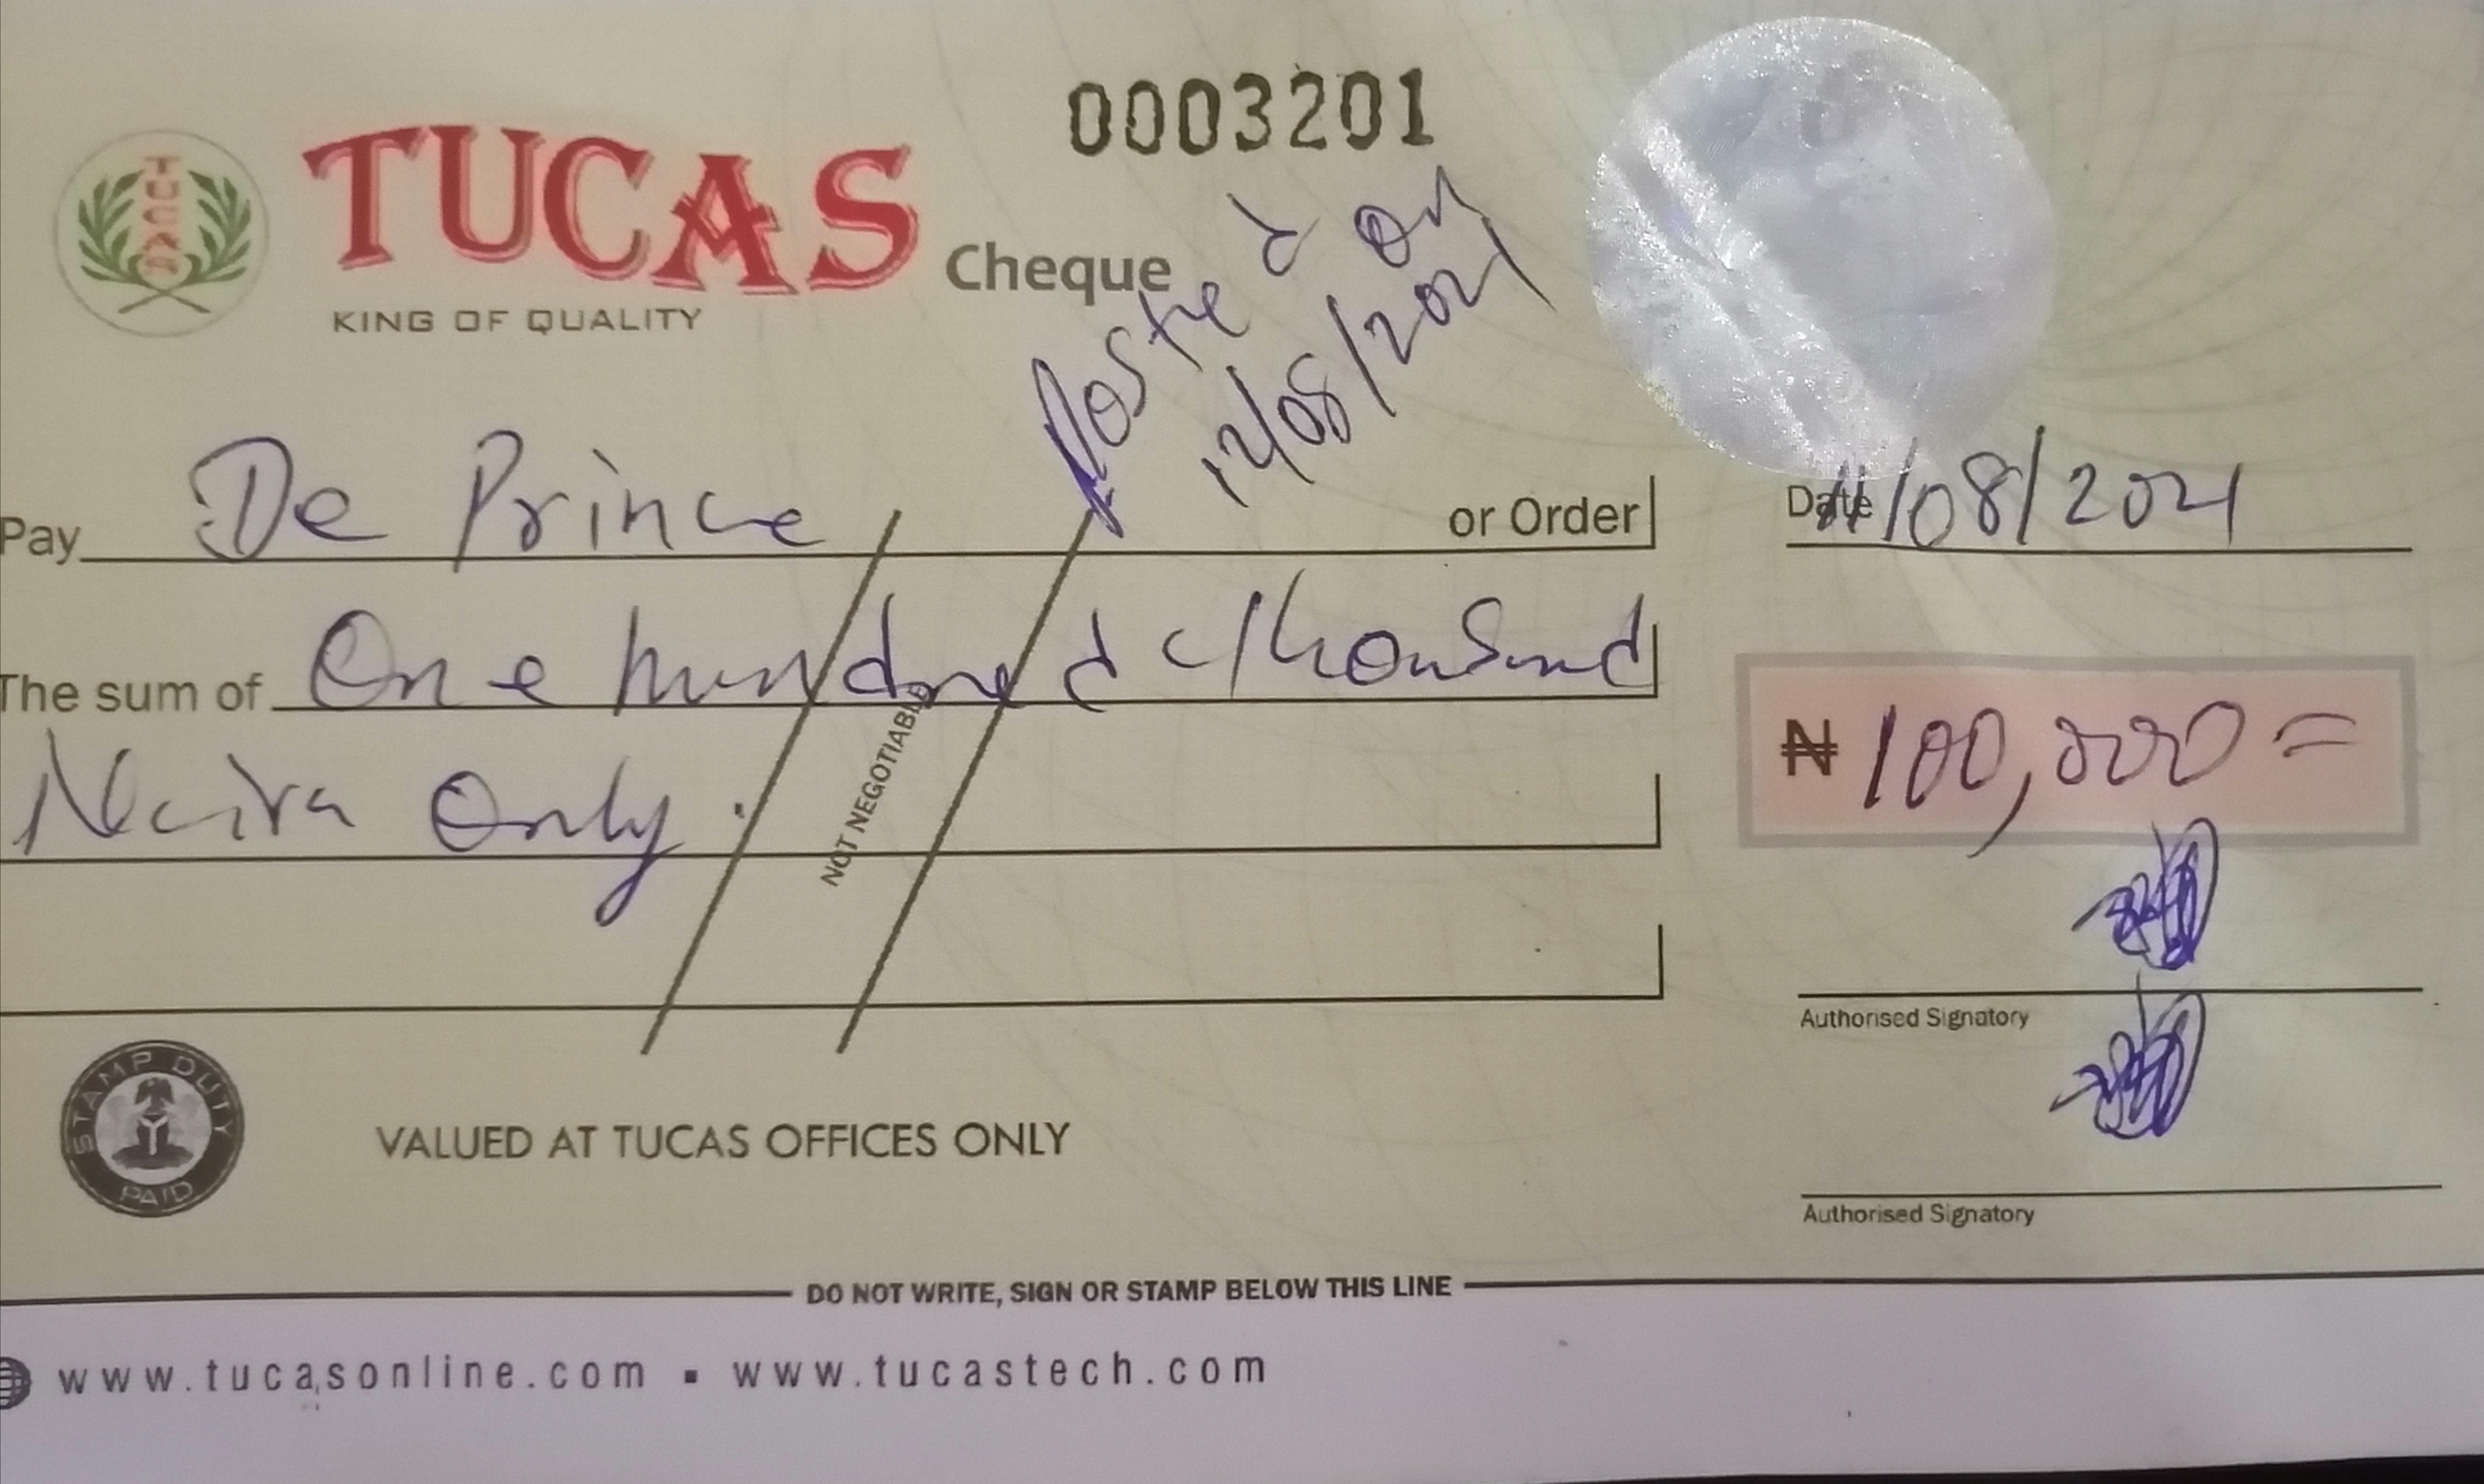 0003201
TUCAS
TUCAS Cheque
KING OF QUALITY
Posted on
12/08/2021
Pay De Prince or Order
Date 11/08/2021
The sum of One hundred Thousand
Naira Only.
₦ 100,000=
NOT NEGOTIABLE
Authorised Signatory
STAMP DUTY
PAID
VALUED AT TUCAS OFFICES ONLY
Authorised Signatory
DO NOT WRITE, SIGN OR STAMP BELOW THIS LINE
www.tucasonline.com ▪ www.tucastech.com